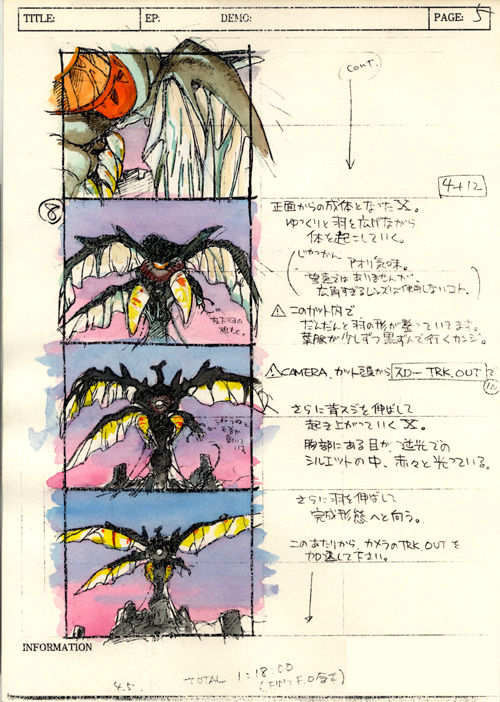 TITLE:
EP:
DEMO:
PAGE: 5
cont.
4+12
⑧
正面からの成体となったX。
ゆっくりと羽を広げながら
体を起こしていく。
じゃっかん アオリ気味。
ありませんが、
広角すぎるレンズは使用しないコト。
このカット内で
だんだんと羽の形が整っていきます。
葉脈が少しずつ黒ずんで行くカンジ。
CAMERA、カット頭から スロー TRK.OUT で
さらに背スジを伸ばして
起き上がっていくX。
胸部にある目が逆光での
シルエットの中、赤々と光っている。
さらに羽を伸ばして
完成形態へと向う。
このあたりから、カメラのTRK.OUTを
加速して下さい。
INFORMATION
4.5.
TOTAL 1:18:00